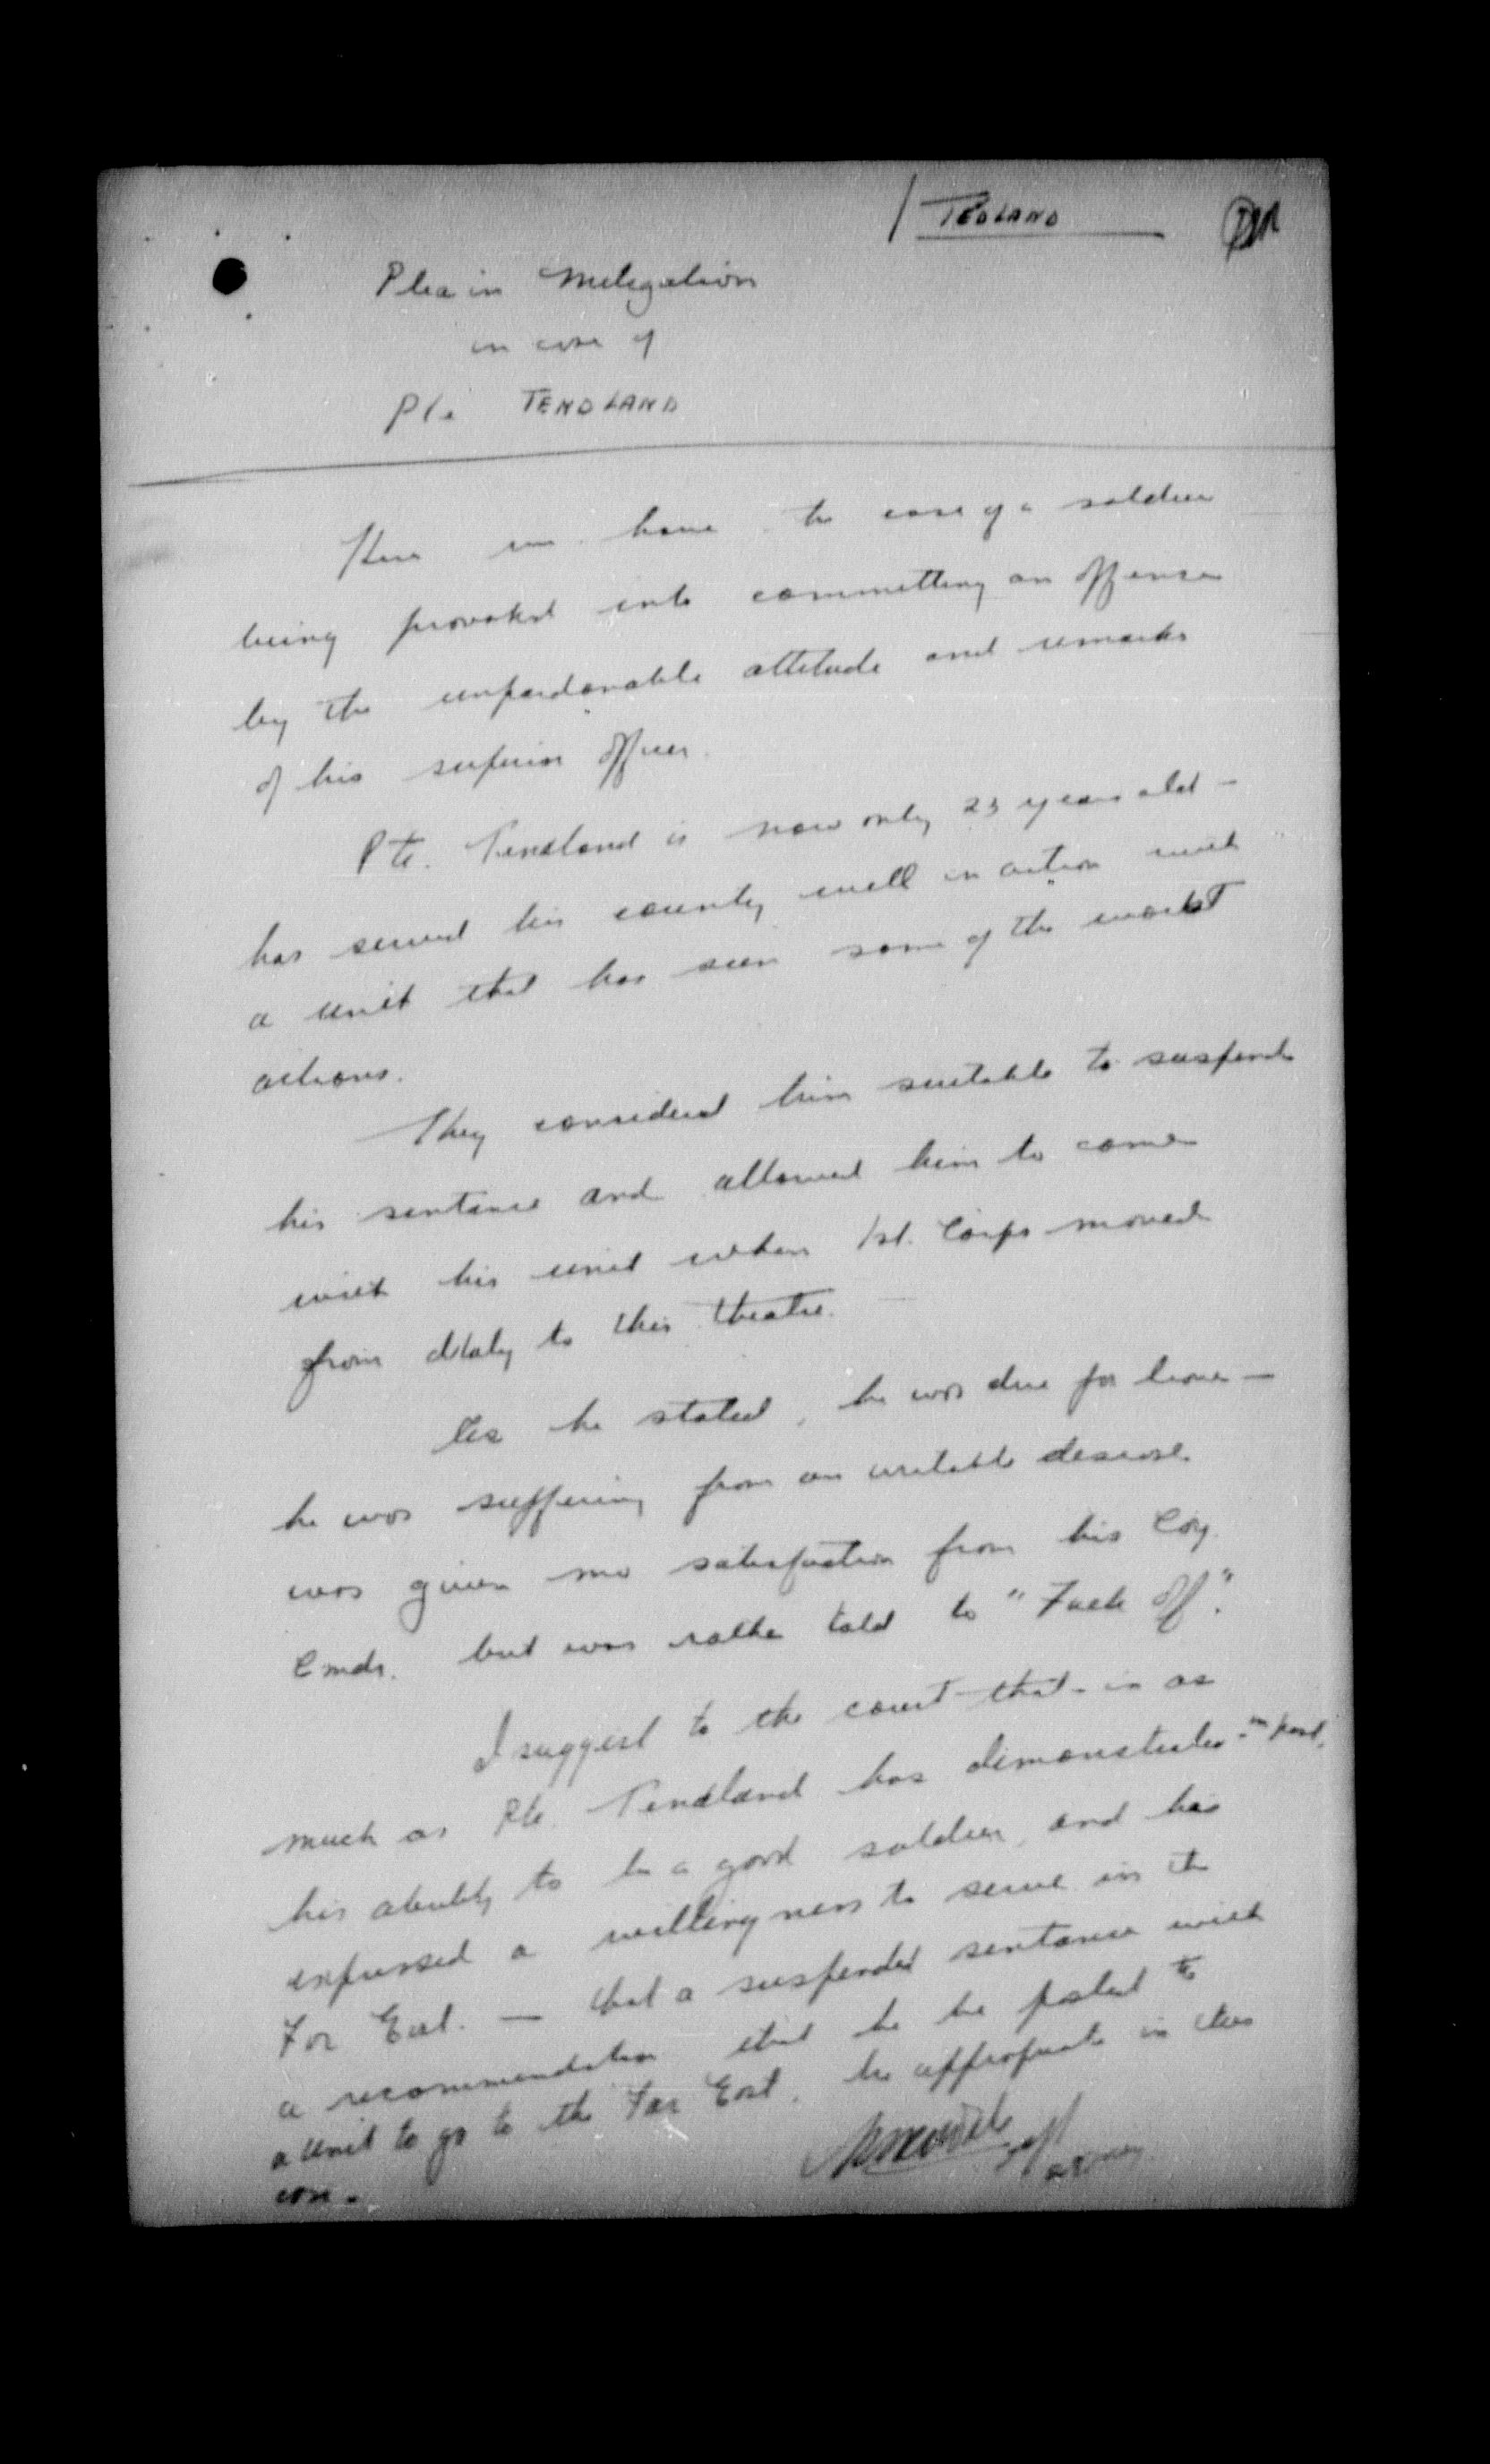 TEDLAND
Plea in Mitigation
in case of
Pte TENDLAND
Here we have the case of a soldier
being provoked into committing an offense
by the unpardonable attitude and remarks
of his superior officer.
Pte. Tendland is now only 23 years old -
has served his country well in action with
a unit that has seen some of the worst
actions.
They considered him suitable to suspend
his sentence and allowed him to come
with his unit when 1st. Corps moved
from Italy to this theatre.
As he stated, he was due for leave -
he was suffering from an irritable disease.
was given no satisfaction from his Coy.
Cmdr. but was rather told to "Fuck off".
I suggest to the court that - in as
much as Pte. Tendland has demonstrated - in past,
his ability to be a good soldier, and has
expressed a willingness to serve in the
Far East. - that a suspended sentence with
a recommendation that he be posted to
a unit to go to the Far East, be appropriate in this
case.